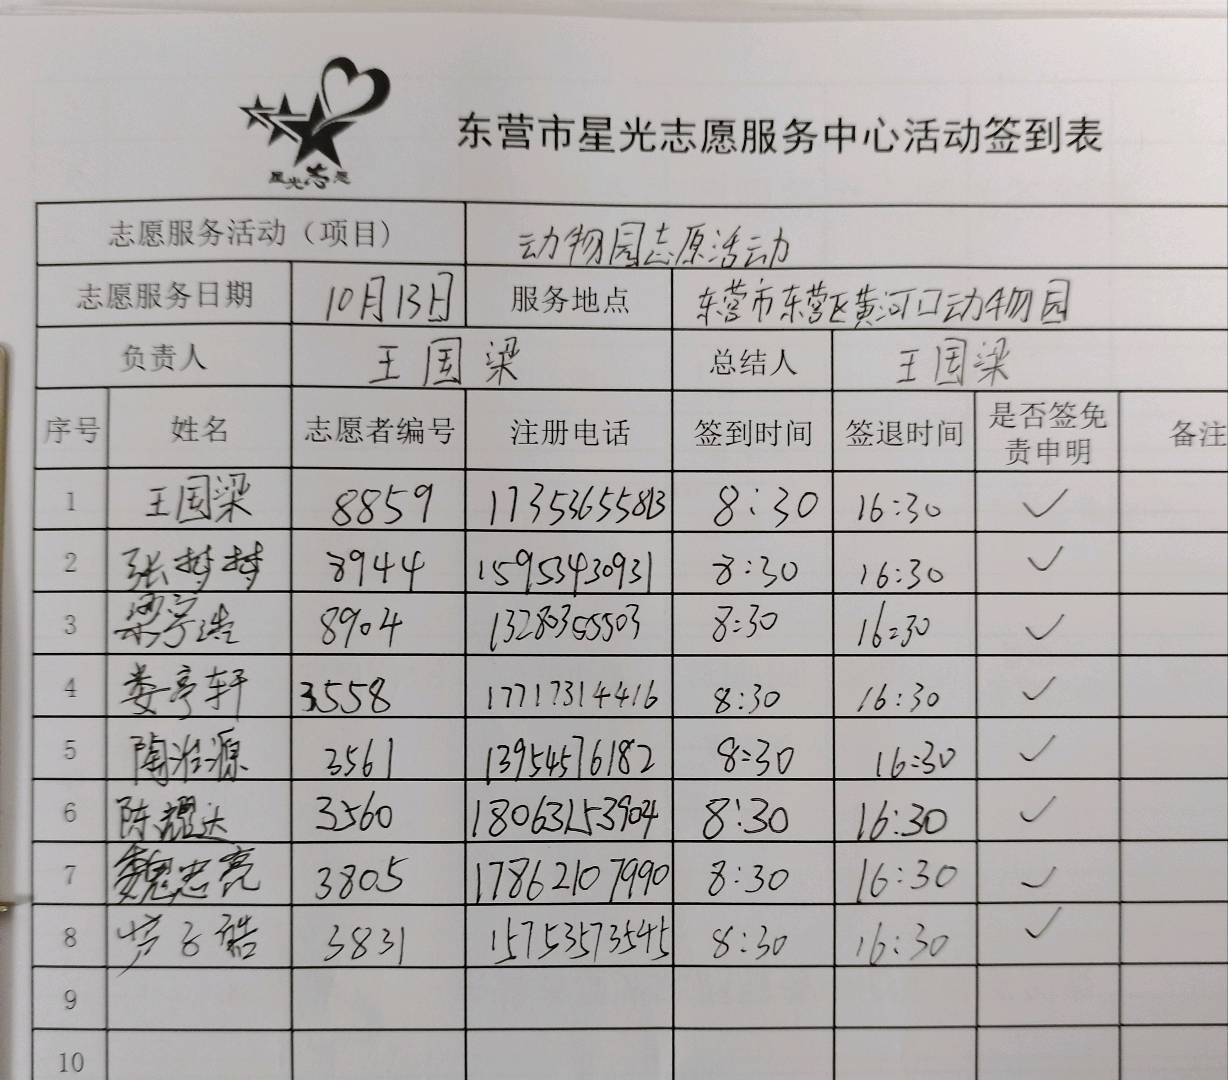 星光志愿
东营市星光志愿服务中心活动签到表
志愿服务活动（项目） 动物园志原活动
志愿服务日期 10月13日 服务地点 东营市东营区黄河口动物园
负责人 王国梁 总结人 王国梁
序号 姓名 志愿者编号 注册电话 签到时间 签退时间 是否签免责申明 备注
1 王国梁 8859 17353655813 8:30 16:30 ✓
2 张梦梦 8944 15953430931 8:30 16:30 ✓
3 梁宁浩 8904 13280355503 8:30 16:30 ✓
4 娄亭轩 3558 17717314416 8:30 16:30 ✓
5 陶治源 3561 13954576182 8:30 16:30 ✓
6 陈耀达 3560 18063153904 8:30 16:30 ✓
7 魏忠亮 3805 17862107990 8:30 16:30 ✓
8 3831 15753573545 8:30 16:30 ✓
9
10